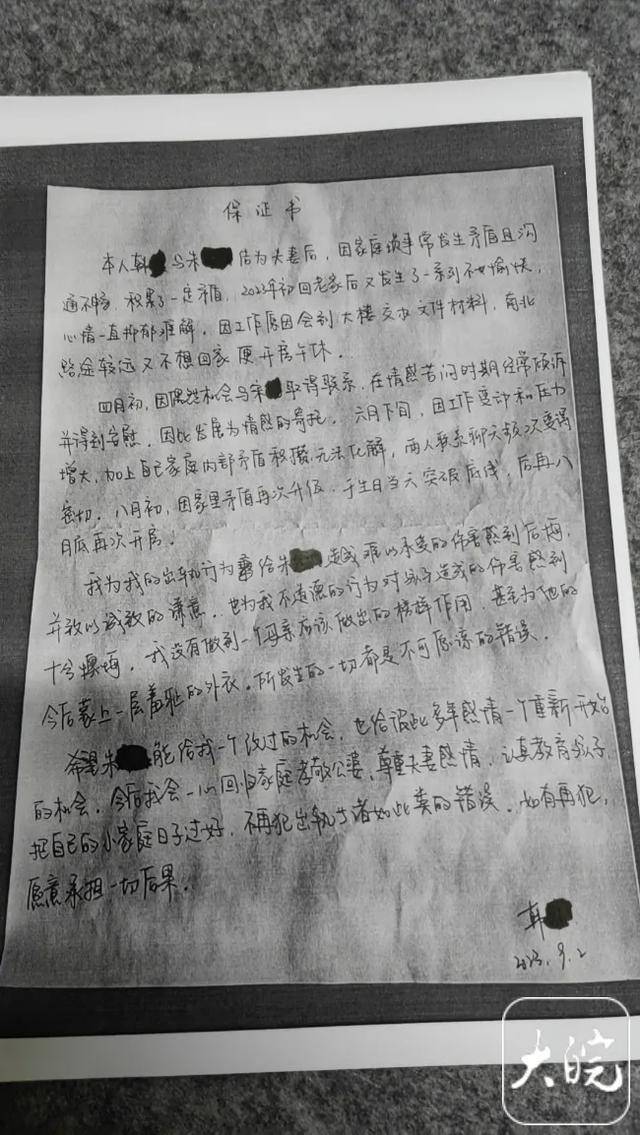 保证书
本人韩 与朱 结为夫妻后，因家庭琐事常发生矛盾且沟
通不畅，积累了一定矛盾，2023年初回老家后又发生了一系列不愉快，
心情一直抑郁难解。因工作原因会到大楼交办文件材料，南北
路途较远又不想回家便开房午休。
四月初，因偶然机会与宋 取得联系，在情感苦闷时期经常倾诉
并得到安慰，因此发展为情感的寄托。六月下旬，因工作变计和压力
增大，加上自己家庭内部矛盾积攒无法化解，两人联系聊天频次变得
密切。八月初，因家里矛盾再次升级，于生日当天突破底线，后再八
月底再次开房。
我为我的出轨行为 给朱 造成难以承受的伤害感到后悔，
并致以诚致的谦意，也为我不道德的行为对孩子造成的伤害感到
十分懊悔，我没有做到一个母亲应该做出的榜样作用，甚至为他的
今后蒙上一层羞耻的外衣。所发生的一切都是不可原谅的错误。
希望朱 能给我一个改过的机会，也给彼此多年感情一个重新开始
的机会，今后我会一心回归家庭孝敬公婆，尊重夫妻感情，认真教育孩子，
把自己的小家庭日子过好，不再犯出轨或者如此类的错误，如有再犯，
愿意承担一切后果。
韩
2023.9.2
大皖